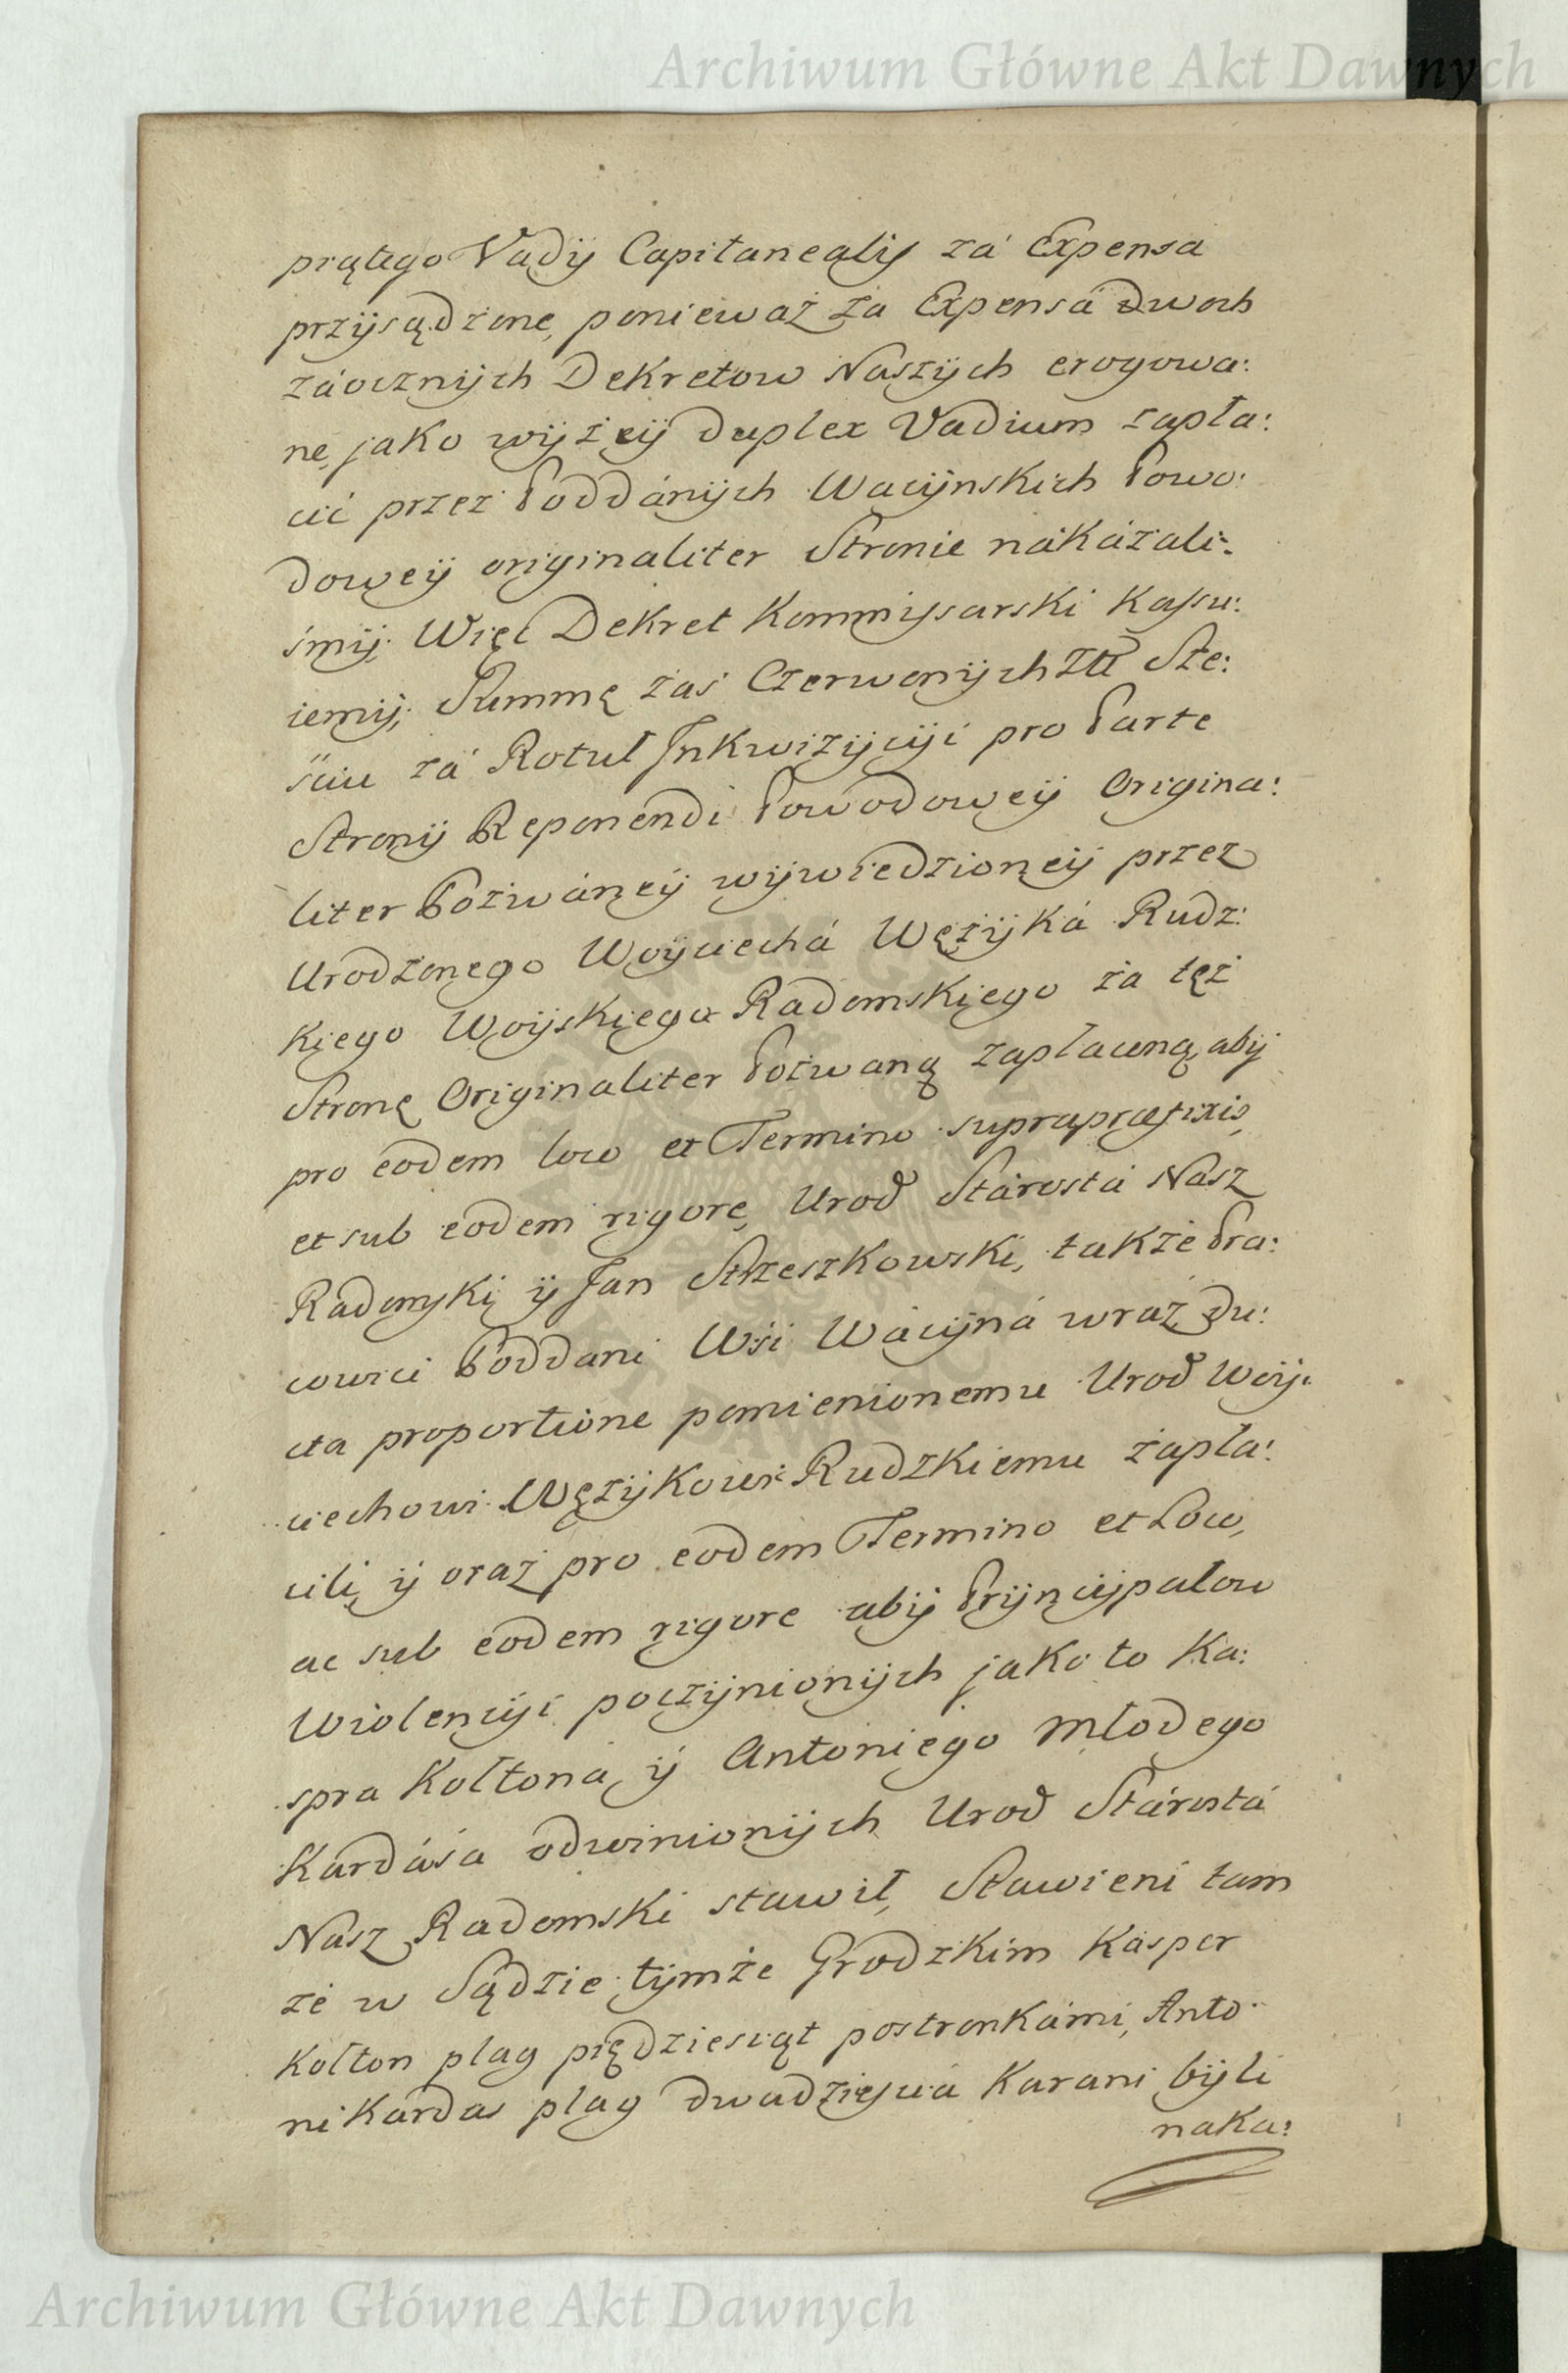 Archiwum Główne Akt Dawnych
piątego Vadij Capitanealis zá Expensa
przysądzone, ponieważ za Expensá dwoch
záocznych Dekretow Naszych erogowa:
ne, jako wyżey duplex Vadium zapła:
cić przez Poddánych Wacynskich Powo:
dowey originaliter Stronie nákázali:
śmy; Więc Dekret Kommissarski kassu:
iemy; Summę zaś Czerwonych Złł Sze:
ściu zá Rotuł Inkwizycyi pro Parte
Strony Reponendi Powodowey Origina:
liter Pozwáney wywiedzioney przez
Urodzonego Woyciechá Wężyká Rudz:
kiego Woyskiego Radomskiego za tęż
Stronę Originaliter Pozwaną zapłaconą, aby
pro eodem loco et Termino suprapræfixis,
et sub eodem rigore, Urod Stárostá Nász
Radomski y Jan Strzeszkowski, także Pra:
cowici Poddani Wsi Wácyná wraz du:
cta proportione pomienionemu Urod Woy:
ciechowi Wężykowi Rudzkiemu zapła:
cili, y oraz pro eodem Termino et Loco,
ac sub eodem rigore aby Pryncypałow
Wiolencyi poczynionych jako to Ka:
spra Kołtoná, y Antoniego Młodego
Kardáśa obwinionych Urod Stárostá
Nász Radomski stawił, Stawieni tam
że w Sądzie tymże Grodzkim Kásper
Kołton plag piędziesiąt postronkámi, Anto:
ni Kardas plag dwadziesciá karani byli
naka:
Archiwum Główne Akt Dawnych